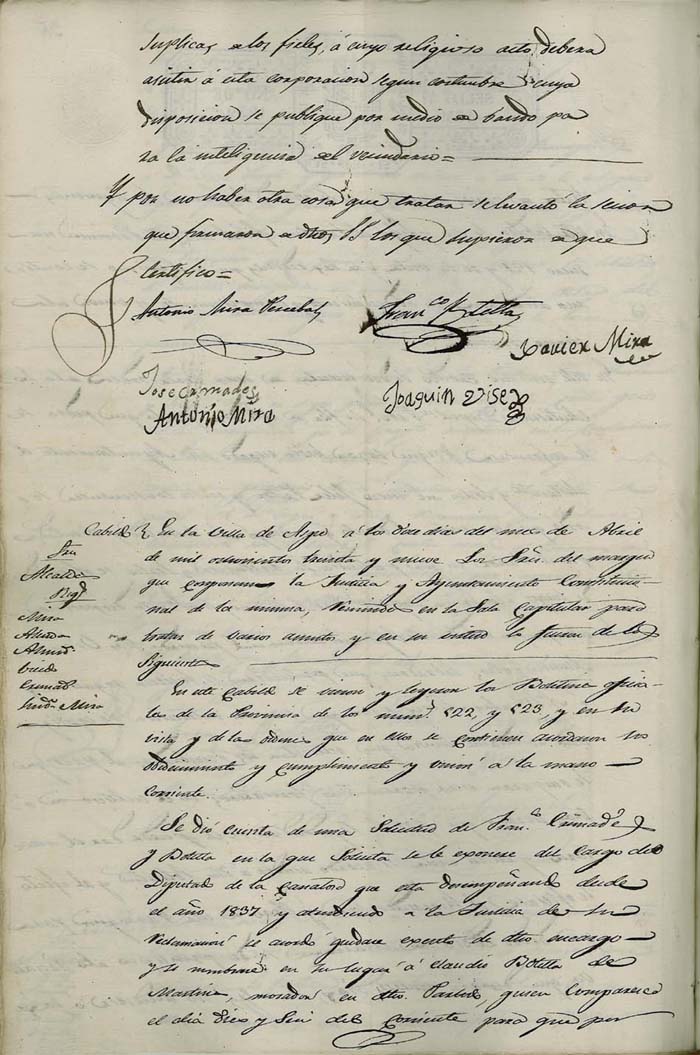 suplicas a los fieles, á cuyo religioso acto, debera
asistir á esta corporacion segun costumbre cuya
disposicion se publique por medio de bando pa
ra la inteligencia del vecindario=
Y por no haber otra cosa que tratar se levantó la sesion
que firmaron dhos SS los que supieron de que
Certifico=
Antonio Mira Percebal
Franco Botella
Xavier Mira
Jose Cremades
Antonio Mira
Joaquin
Cabildo En la Villa de Aspe á los doce dias del mes de Abril
de mil ochocientos treinta y nueve Los Sres. del margen
que componen la Justicia y Ayuntamiento Constitucio-
nal de la misma, reunidos en la Sala Capitular para
tratar de varios asuntos y en su virtud lo fueron de los
siguientes
Sres
Alcalde
Mira
Almodo
Almod
Cremads
Sindo Mira
En este Cabildo se vieron y leyeron los Boletines oficia-
les de la Provincia de los nums. 522, y 523, y en su
vista y de las ordenes que en ellos se contienen acordaron su
obedecimiento y cumplimiento y unirse á la mano
corriente.
Se dió cuenta de una Solicitud de Franco Cremades
y Botella en la que Solicita se le exonere del Cargo de
Diputado de la que esta desempeñando desde
el año 1837 y atendiendo a la Justicia de su
reclamacion se acordó quedare exento de dho encargo
y se nombrase en su lugar á Claudio Botella de
Martinez, morador en dho Partido, quien comparesca
el dia diez y seis del Corriente para que por